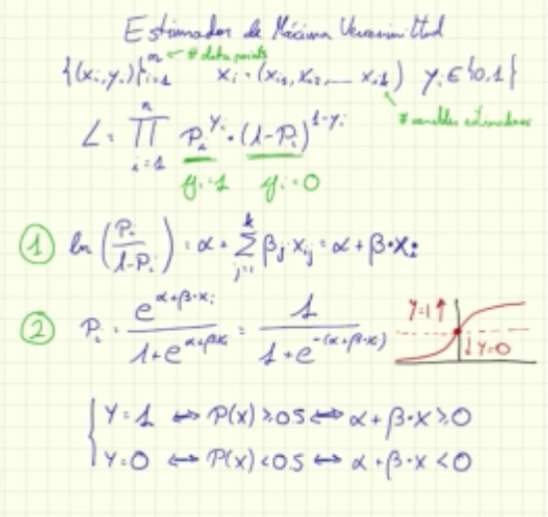 Estimador de Máxima Verosimilitud
{(xᵢ, yᵢ)}ⁿᵢ₌₁ ← # data points   xᵢ = (xᵢ₁, xᵢ₂, ... xᵢₖ)   yᵢ ∈ {0,1}
# variables
L = ∏ⁿᵢ₌₁ Pᵢ^yᵢ · (1-Pᵢ)^(1-yᵢ)
yᵢ=1   yᵢ=0
① ln (Pᵢ / 1-Pᵢ) = α + ∑ᵏⱼ₌₁ βⱼ xᵢⱼ = α + β·xᵢ
② Pᵢ = e^(α+β·xᵢ) / 1+e^(α+βxᵢ) = 1 / 1+e^-(α+β·xᵢ)   Y=1↑   ↓Y=0
{ Y=1 ⟺ P(x) ≥ 0.5 ⟺ α + β·x ≥ 0
Y=0 ⟺ P(x) < 0.5 ⟺ α + β·x < 0